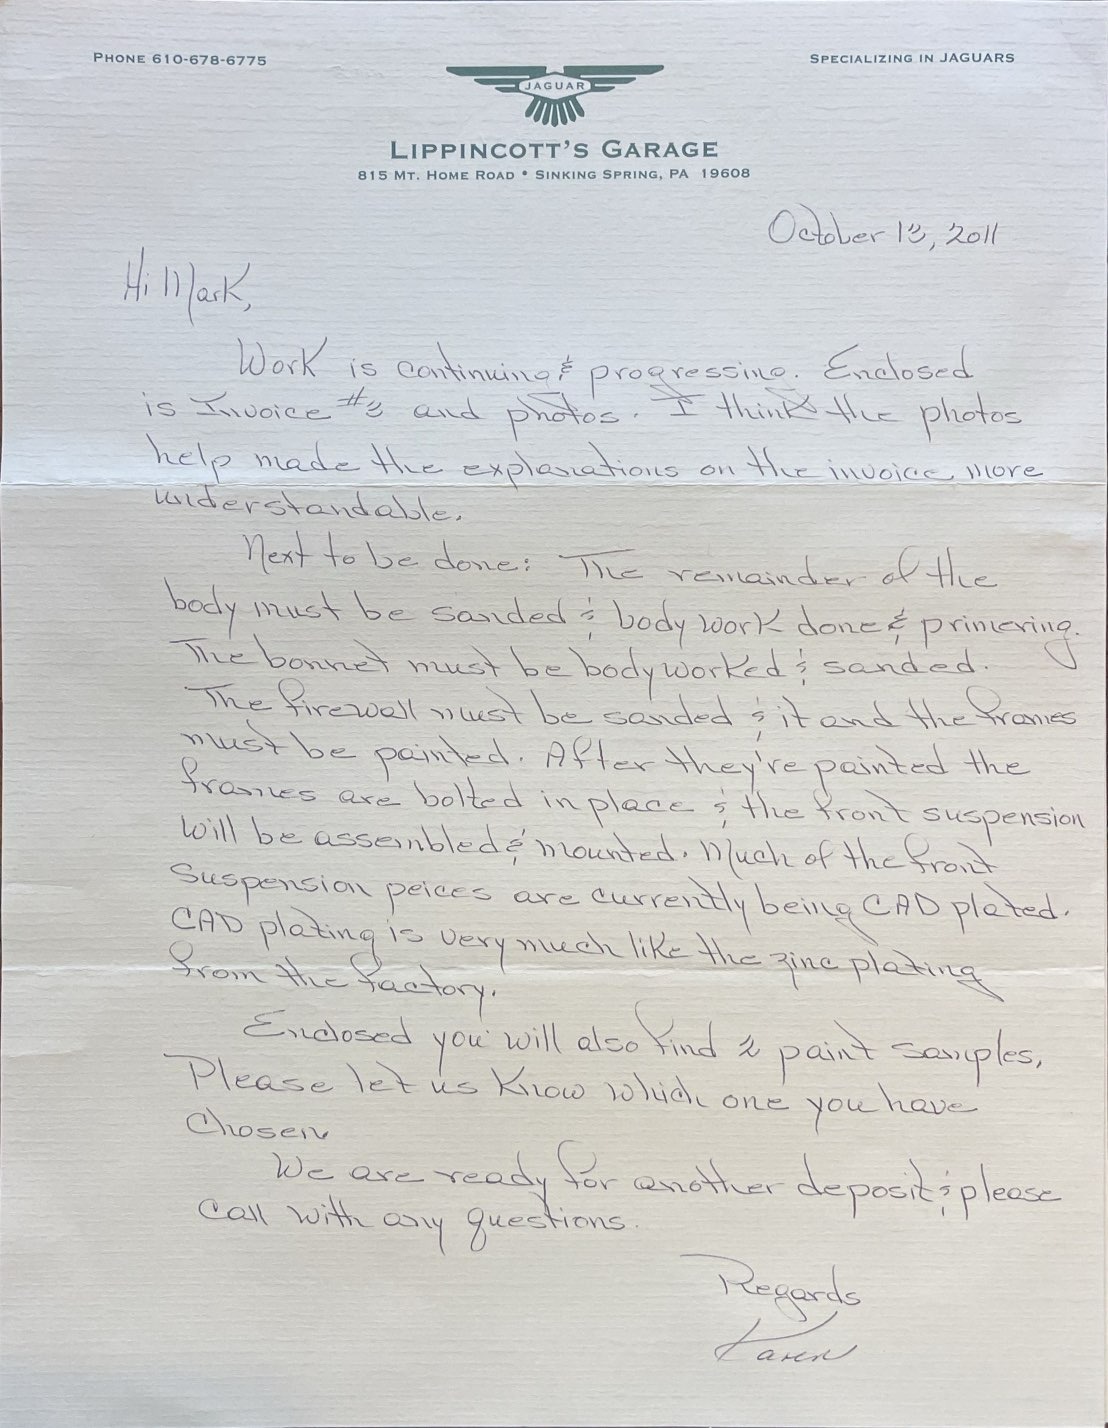 PHONE 610-678-6775
SPECIALIZING IN JAGUARS
JAGUAR
LIPPINCOTT'S GARAGE
815 MT. HOME ROAD • SINKING SPRING, PA 19608
October 13, 2011
Hi Mark,
Work is continuing & progressing. Enclosed
is Invoice #3 and photos. I think the photos
help made the explanations on the invoice more
understandable.
Next to be done: The remainder of the
body must be sanded & body work done & primering.
The bonnet must be bodyworked & sanded.
The firewall must be sanded & it and the frames
must be painted. After they're painted the
frames are bolted in place & the front suspension
will be assembled & mounted. Much of the front
suspension peices are currently being CAD plated.
CAD plating is very much like the zinc plating
from the factory.
Enclosed you will also find 2 paint samples,
Please let us know which one you have
chosen
We are ready for another deposit & please
call with any questions.
Regards
Karen